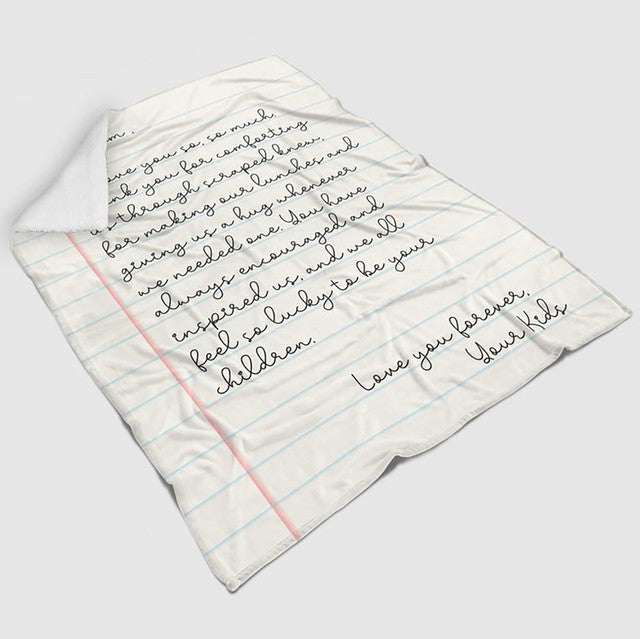 you so, so much.
you for comforting
through scraped knew,
for making our lunches and
giving us a hug whenever
we needed one. You have
always encouraged and
inspired us, and we all
feel so lucky to be your
children.
Love you forever,
Your Kids